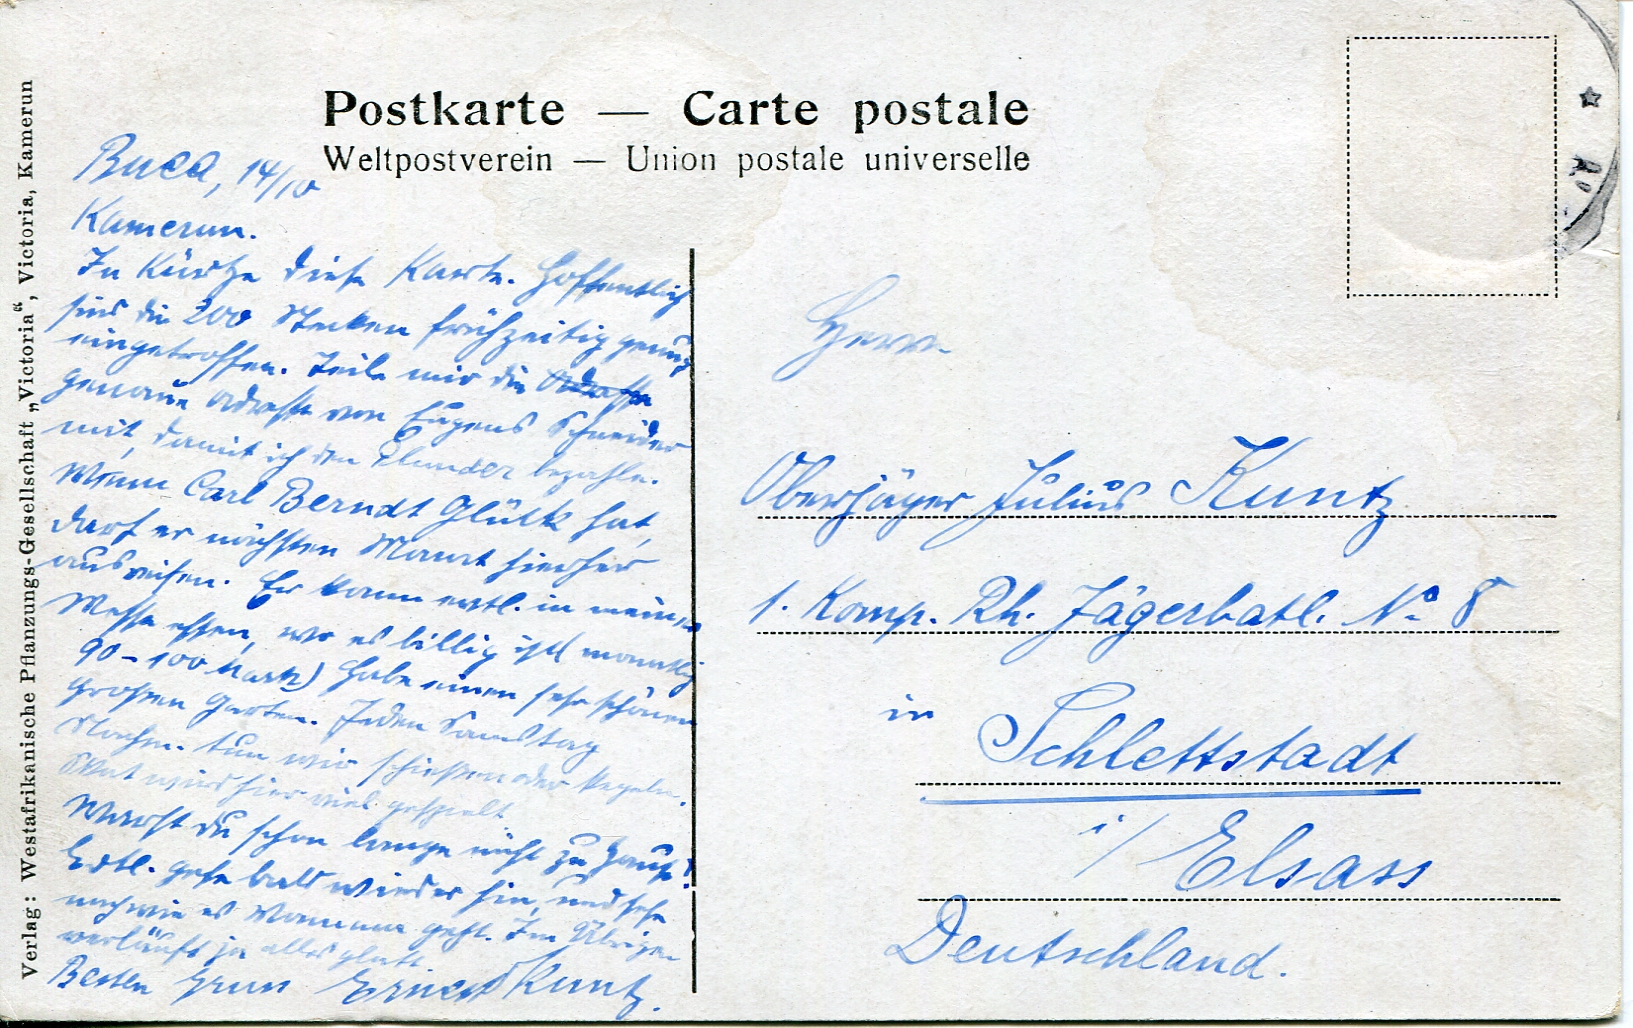 Postkarte — Carte postale
Weltpostverein — Union postale universelle
Verlag: Westafrikanische Pflanzungs-Gesellschaft „Victoria“, Victoria, Kamerun
Buea, 14/10
Kamerun.
In Kürze diese Karte. Hoffentlich
sind die 200 frühzeitig genug
eingetroffen. Teile mir die Adresse
genaue Adresse von Eugens Schneider
mit, damit ich den Plunder bezahle.
Wenn Carl Berndt Glück hat,
darf er nächsten Monat hierher
ausreisen. Er kann evtl. in meiner
Messe essen, wo es billig ist (monatlich
90-100 Mark) Habe einen sehr schönen
großen Garten. Jeden Samstag
Nachm. tun wir schießen oder kegeln.
Skat wird hier viel gespielt
Warst du schon lange nicht zu Hause?
Evtl. gehe bald wieder hin, und sehe
nach wie es Mamma geht. Im Übrigen
verläuft ja alles glatt.
Besten Gruss Ernest Kuntz.
Herrn
Oberjäger Julius Kuntz
1. Komp. Rh. Jägerbatl. No 8
in Schlettstadt
i/ Elsass
Deutschland.